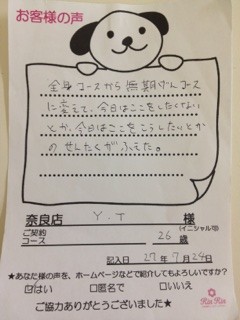 お客様の声
全身コースから無期げんコース
に変えて、今日はここをしたくない
とか、今日はここをこうしたいとか
のせんたくがふえた。
奈良店 Y.T 様
(イニシャル可)
ご契約
コース 26 歳
記入日 27年7月24日
★あなた様の声を、ホームページなどで紹介してもよろしいですか?
☑はい □匿名で □いいえ
ご協力ありがとうございました★
Rin Rin